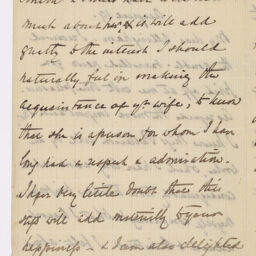 much about her, & it will add
greatly to the interest I should
naturally feel in making the
acquaintance of yr wife, to know
that she is a person for whom I have
long had a respect & admiration.
I have very little doubt that this
step will add materially to your
happiness - & I am also delighted